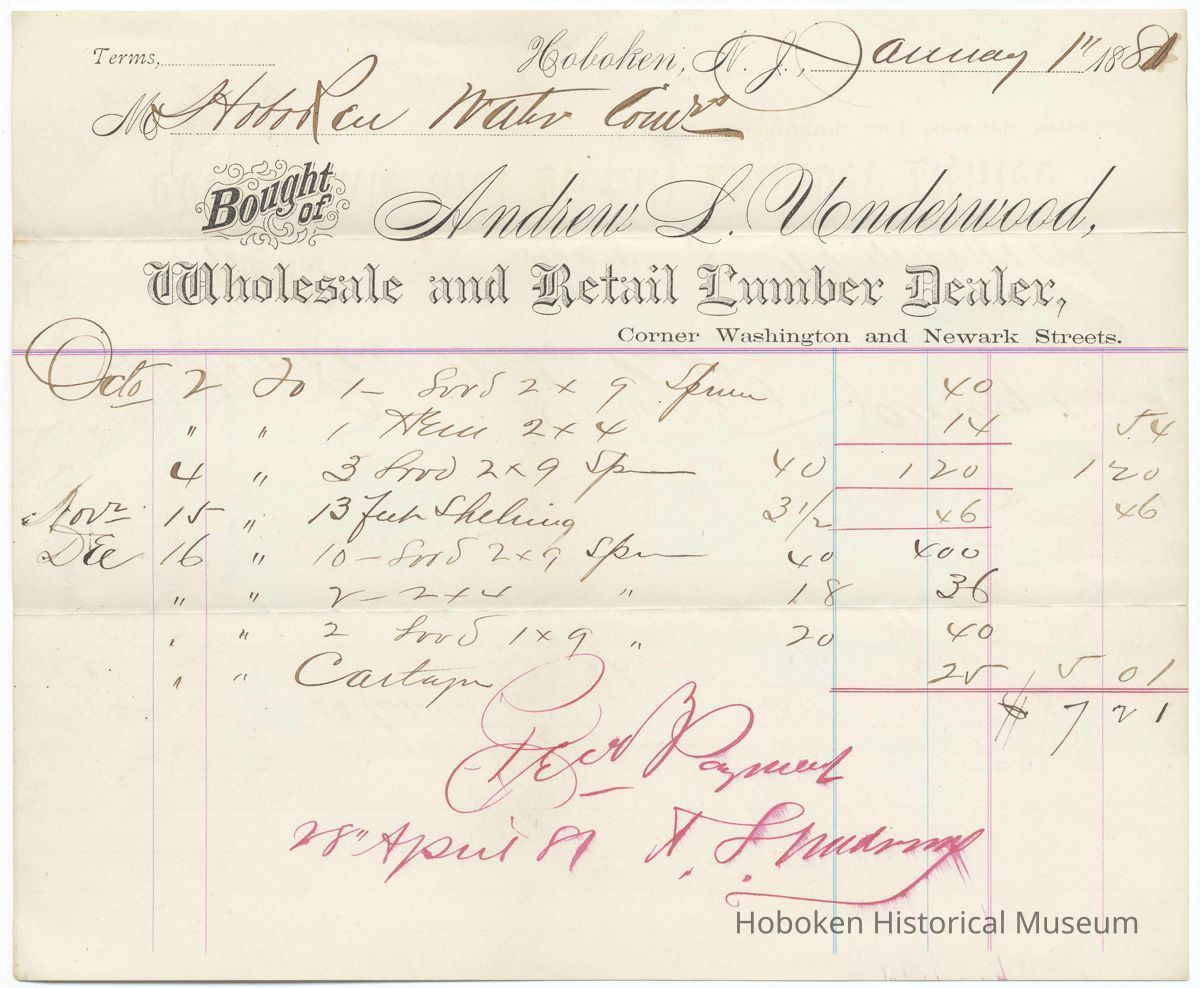 Terms, Hoboken, N. J., January 1" 1881
M Hoboken Water Comrs
Bought of Andrew L. Underwood,
Wholesale and Retail Lumber Dealer,
Corner Washington and Newark Streets.
Octo 2 To 1 - Good 2 x 9 Spruce 40
" " 1 Hem 2 x 4 14 54
4 " 3 Good 2 x 9 Sp 40 120 1 20
Novr 15 " 13 feet Shelving 3 1/2 46 46
Dec 16 " 10 - Good 2 x 9 Sp 40 400
" " 2 - 2 x 4 " 18 36
" " 2 Good 1 x 9 " 20 40
" " Cartage 25 5 01
$ 7 21
Recd Payment
28" April 81 A. L. Underwood
Hoboken Historical Museum